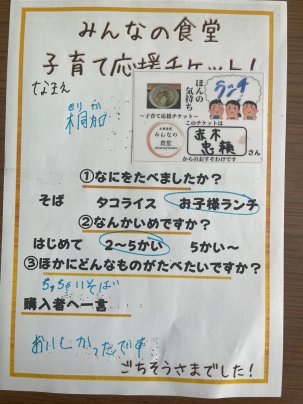 みんなの食堂
子育て応援チケット!
なまえ
きりか
桐加
ランチ
ほんの
気持ち
～子育て応援チケット～
このチケットは
みんなの
食堂
赤木
忠頼
さん
からのおすそわけです
①なにをたべましたか?
そば タコライス お子様ランチ
②なんかいめですか?
はじめて 2～5かい 5かい～
③ほかにどんなものがたべたいですか?
ちっちゃいそば
購入者へ一言
おいしかったです
ごちそうさまでした!